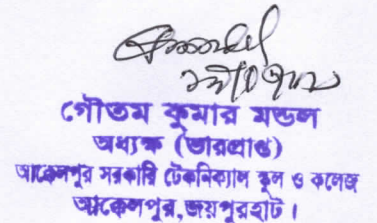 গৌতম কুমার মন্ডল
অধ্যক্ষ (ভারপ্রাপ্ত)
আক্কেলপুর সরকারি টেকনিক্যাল স্কুল ও কলেজ
আক্কেলপুর, জয়পুরহাট।